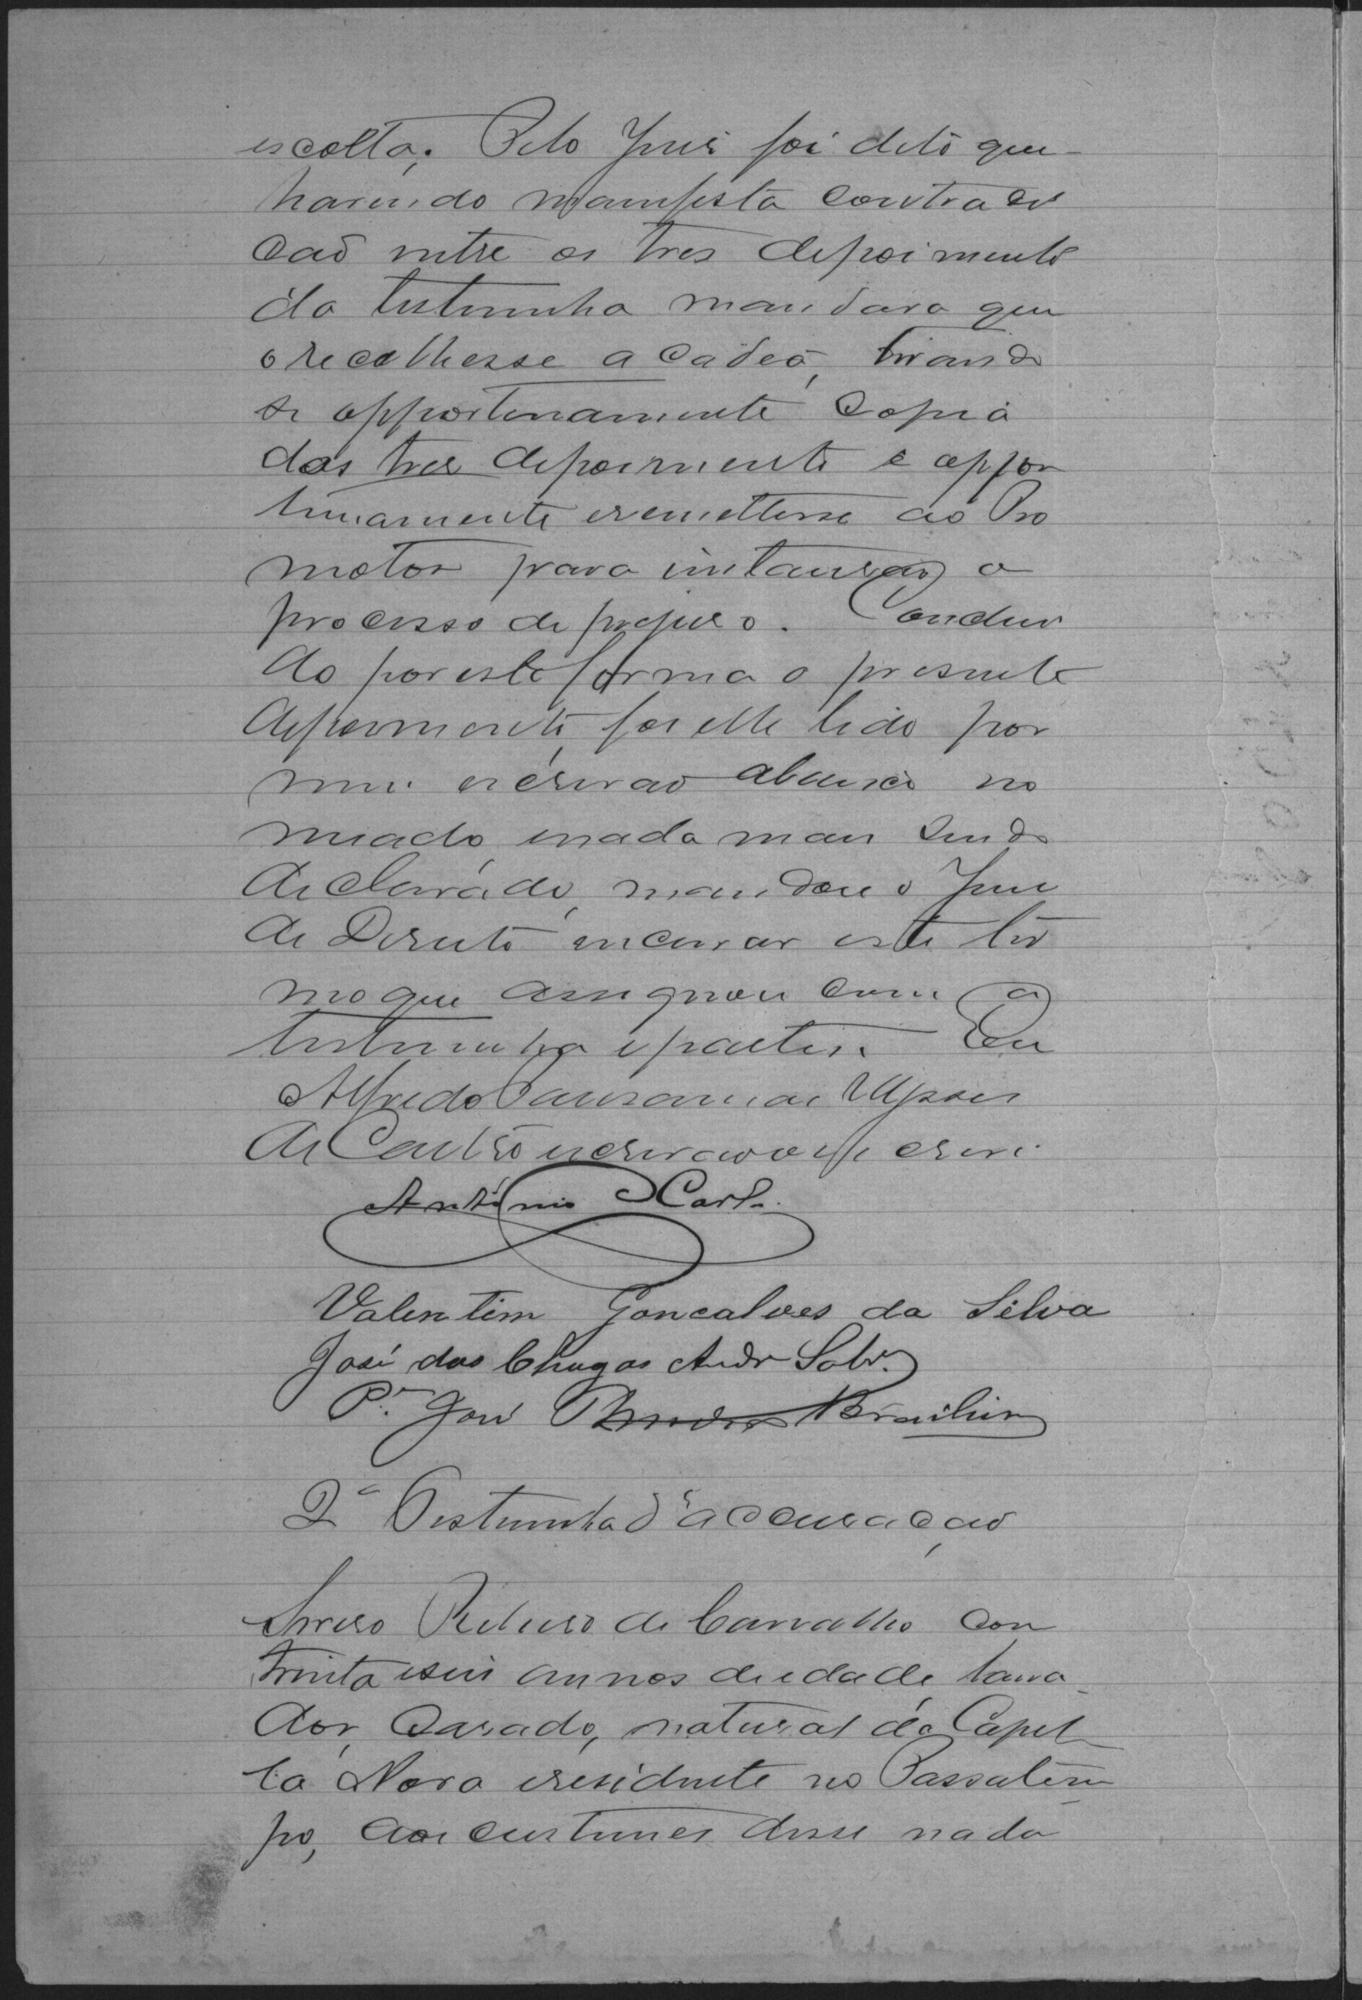 escolta; Pelo Juis foi dito que
havendo manifesta contradi
cão entre os tres depoimento
da testimunha mandava que
o recolhesse a cadeia, tirando
se opportunamente copia
dos tres depoimento e oppor
tunamente e remettesse ao Pro
motor para instaurar o
processo de prejuro. Conclui
do por esta forma o presente
depoimento foi elle lido por
mim escrivão abaixo no
miado e nada mais sendo
declarado, mandou o Juis
de Direito encerrar este ter
mo que assignou com a
testimunha e partes. Eu
Alfredo Pausanias Ulysses
de Castro escrivão o escrevi
Antônio Carl.
Valentim Goncalves da Silva
José das Chagas Andr Sobr.
Pe. José Brasilin
2ª Testimunha d'accusação
Ribeiro de Carvalho com
trinta e seis annos de edade lavra
dor, casado, natural da Capel
la Nova e residente no Passatem
po, aos custumes disse nada